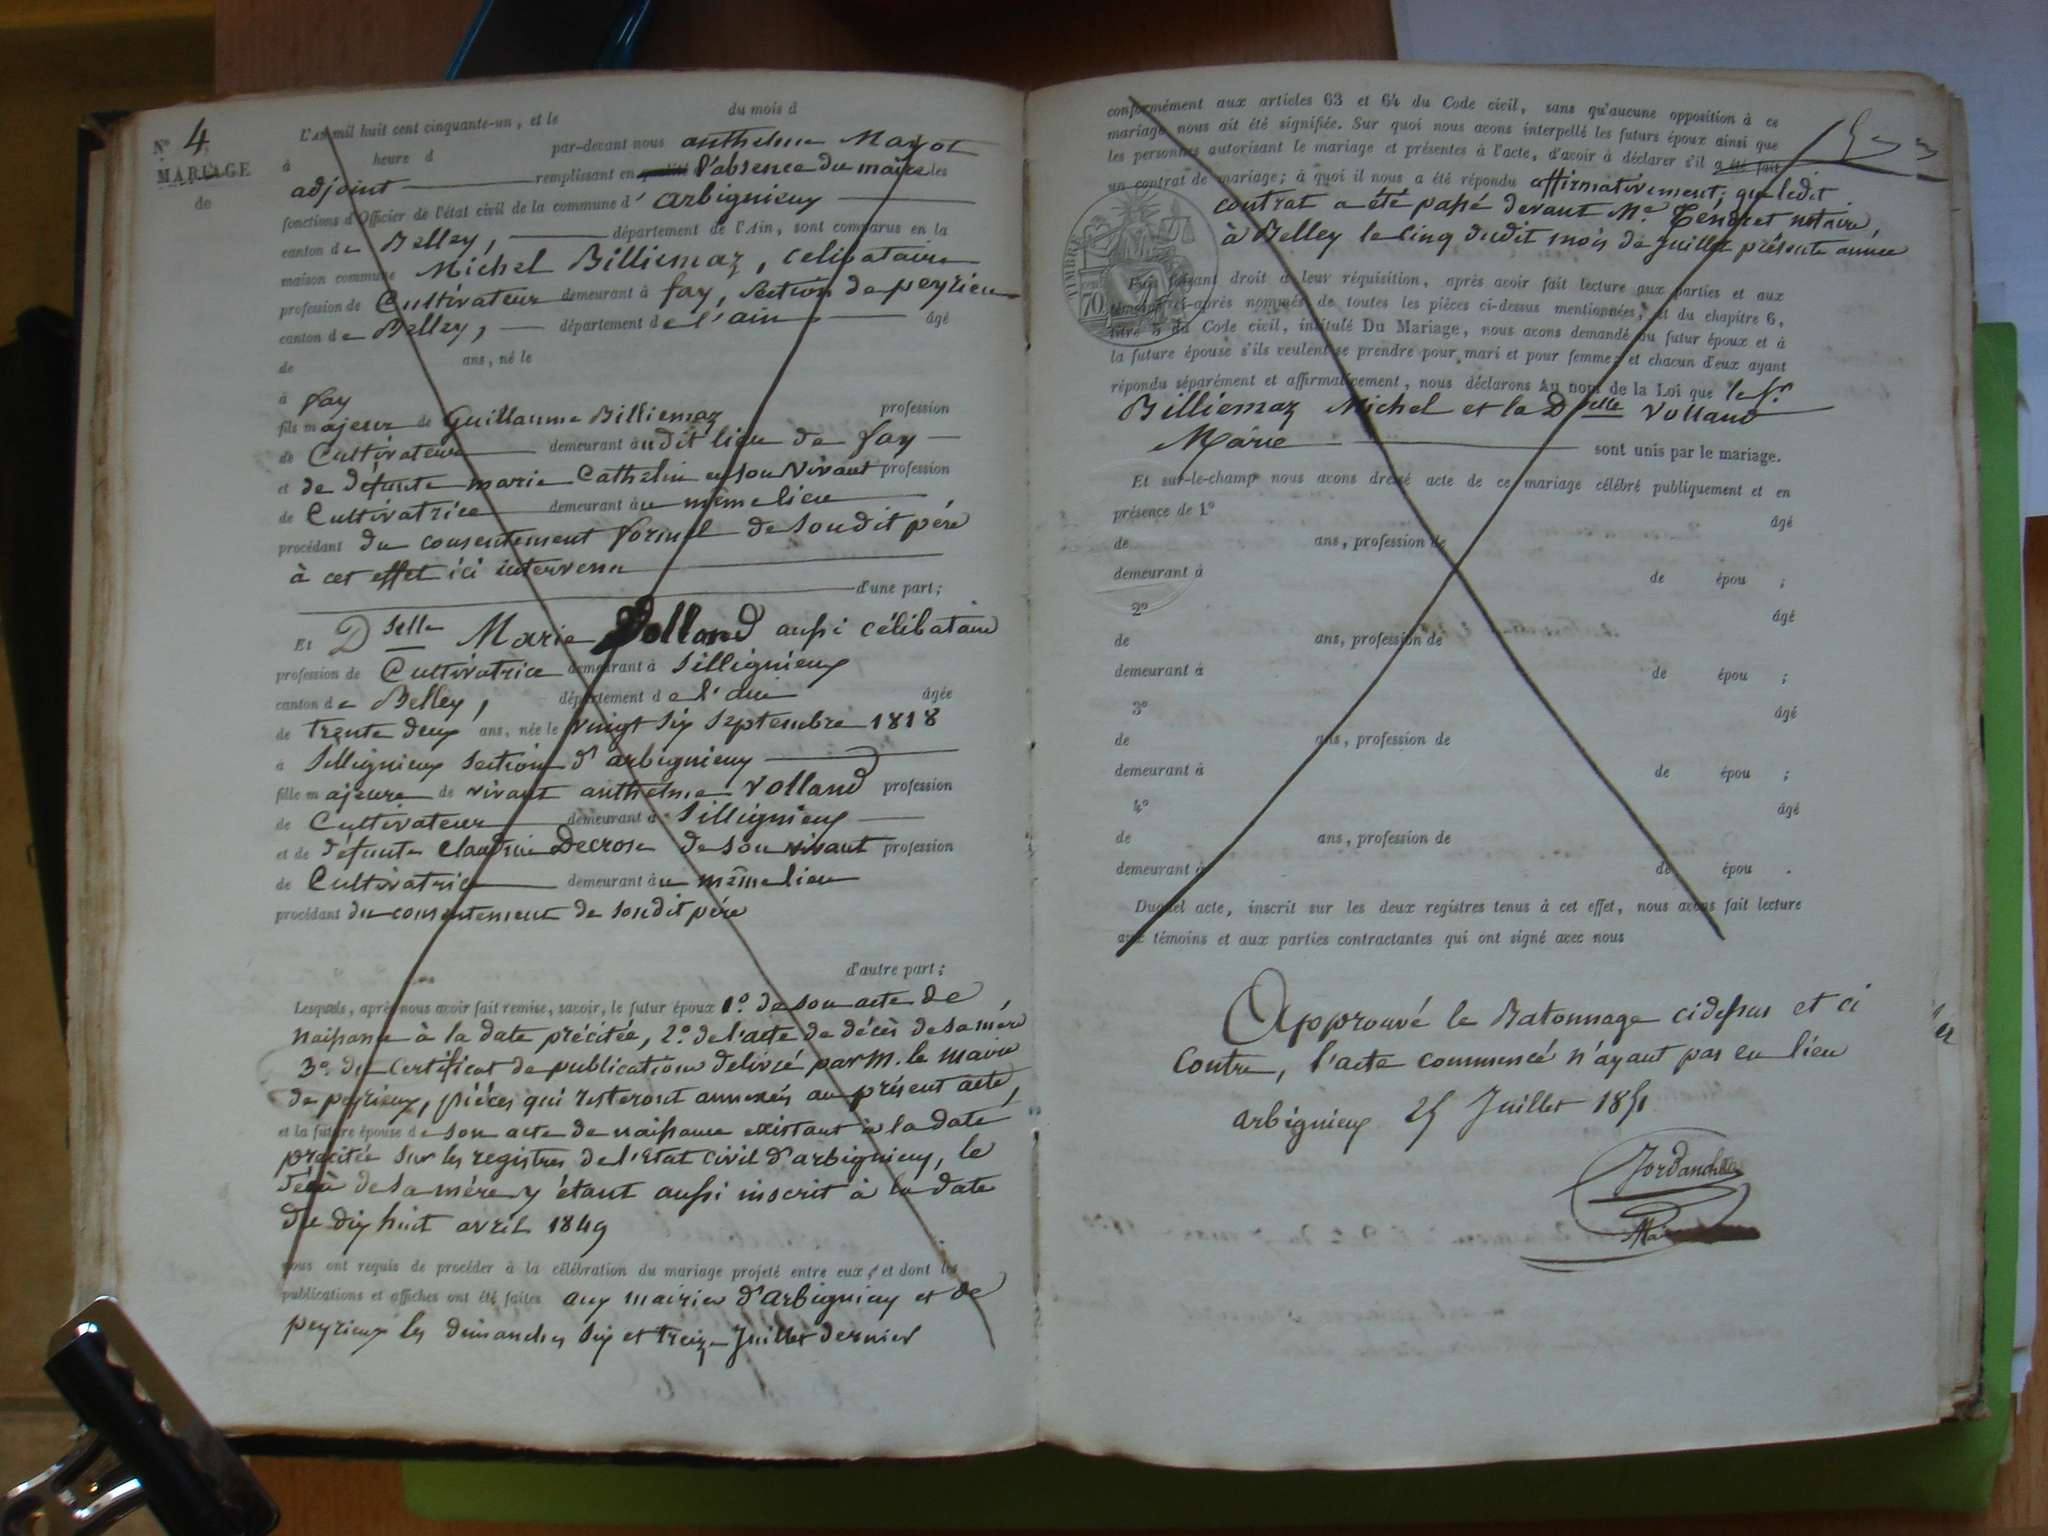 N° 4
MARIAGE
de
L'An mil huit cent cinquante-un, et le du mois d
à heure d par-devant nous anthelme Mayot
adjoint remplissant en l'absence du maire les
fonctions d'Officier de l'état civil de la commune d' arbignieux
canton de Belley, département de l'Ain, sont comparus en la
maison commune Michel Billiemaz, celibataire
profession de Cultivateur demeurant à fay, section de peyrieu
canton de Belley, département de l'ain âgé
de ans, né le
à fay
fils majeur de Guillaume Billiemaz profession
de Cultivateur demeurant audit lieu de fay
et de défunte marie Cathelin en son vivant profession
de Cultivatrice demeurant au même lieu
procédant du consentement formel de son dit père
à cet effet ici intervenu
d'une part;
Et Dselle Marie Volland aussi célibataire
profession de Cultivatrice demeurant à Sillignieux
canton de Belley, département de l'ain âgée
de trente deux ans, née le vingt six septembre 1818
à Sillignieux section d'arbignieux
fille majeure de vivant anthelme Volland profession
de Cultivateur demeurant à Sillignieux
et de défunte Claudine Decrose de son vivant profession
de Cultivatrice demeurant au même lieu
procédant du consentement de son dit père
d'autre part;
Lesquels, après nous avoir fait remise, savoir, le futur époux 1°. de son acte de
naissance à la date précitée, 2°. de l'acte de décès de sa mère
3°. du Certificat de publication delivré par M. le maire
de peyrieux, pièces qui resteront annexées au présent acte,
et la future épouse de son acte de naissance existant à la date
précitée sur les registres de l'Etat Civil d'arbignieux, le
décès de sa mère y étant aussi inscrit à la date
du dix huit avril 1849
nous ont requis de procéder à la célébration du mariage projeté entre eux, et dont les
publications et affiches ont été faites aux mairies d'arbignieux et de
peyrieux les dimanches six et treize Juillet dernier
conformément aux articles 63 et 64 du Code civil, sans qu'aucune opposition à ce
mariage nous ait été signifiée. Sur quoi nous avons interpellé les futurs époux ainsi que
les personnes autorisant le mariage et présentes à l'acte, d'avoir à déclarer s'il a été fait
un contrat de mariage; à quoi il nous a été répondu affirmativement; que ledit
contrat a été passé devant Me Tendret notaire,
à Belley le cinq dudit mois de juillet présente année
TIMBRE
70
Puis faisant droit à leur réquisition, après avoir fait lecture aux parties et aux
témoins ci-après nommés de toutes les pièces ci-dessus mentionnées, et du chapitre 6,
titre 5 du Code civil, intitulé Du Mariage, nous avons demandé au futur époux et à
la future épouse s'ils veulent se prendre pour mari et pour femme; et chacun d'eux ayant
répondu séparément et affirmativement, nous déclarons Au nom de la Loi que le Sr.
Billiemaz Michel et la Dselle Volland
Marie sont unis par le mariage.
Et sur-le-champ nous avons dressé acte de ce mariage célébré publiquement et en
présence de 1° âgé
de ans, profession de
demeurant à de épou ;
2° âgé
de ans, profession de
demeurant à de épou ;
3° âgé
de ans, profession de
demeurant à de épou ;
4° âgé
de ans, profession de
demeurant à de épou .
Duquel acte, inscrit sur les deux registres tenus à cet effet, nous avons fait lecture
aux témoins et aux parties contractantes qui ont signé avec nous
Approuvé le Batonnage cidessus et ci
Contre, l'acte commencé n'ayant pas eu lieu
arbignieux 25 Juillet 1851